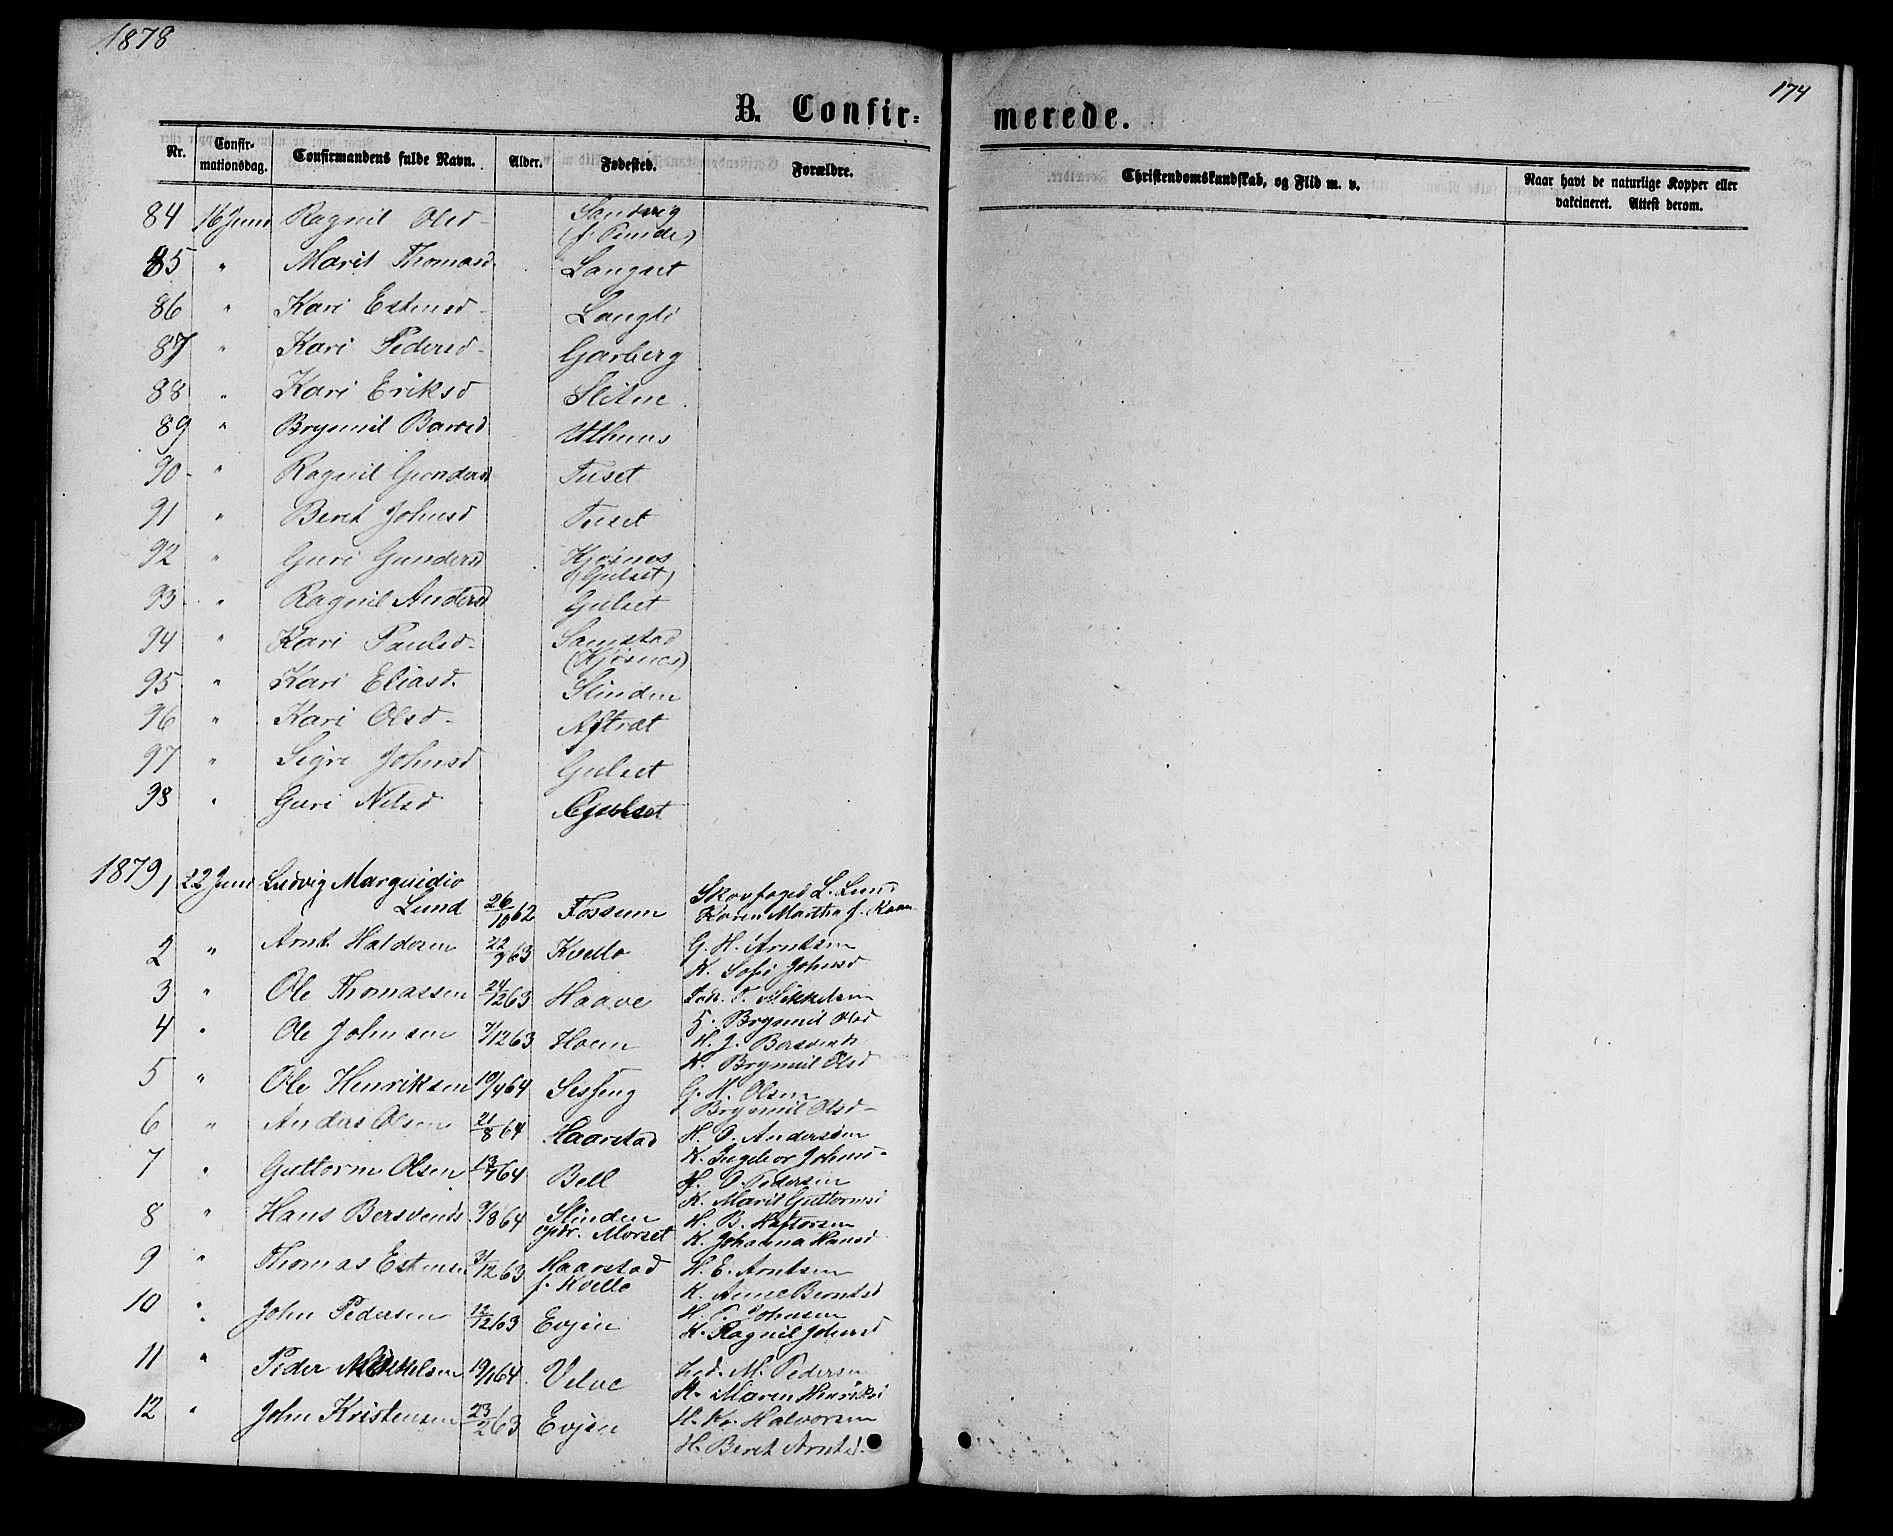 1878
174
B. Confir-
merede.
Nr. Confir-mationsdag. Confirmandens fulde Navn. Alder. Fødested. Forældre.
Christendomskundskab, og Flid m. v. Naar havt de naturlige Kopper eller vakcineret. Attest derom.
84 16 Juni Ragnil Olsd- Sandvig
85 " Marit Thomasd. Langset
86 " Kari Estensd- Langli
87 " Kari Pedersd- Garberg
88 " Kari Eriksd Slitne
89 " Brynnil Baarsd Uthuus
90- " Ragnil Gundersd Tuset
91 " Beret Johnsd Tuset
92 " Guri Gundersd Kjøsnes
(Gulset)
93 " Ragnil Andersd Gulset
94 " Kari Paulsd- Samstad
(Kjøsnes)
95 " Kari Eliasd. Slinden
96 " Kari Olsd- Aftret
97 " Sigri Johnsd Gulset
98 " Guri Nilsd
1879, 22 Juni Ludvig
Lund 26/10 62 Fossum Skovfoged L. Lund
Karen Martha f.
2 " Arnt Haldosen 22/9 63 Kvello G. H. Arntsen
K. Sofi Johnsd
3 " Ole Thomassen 24/12 63 Haave T. Mikkelsen
Brynnil Olsd
4 " Ole Johnsen 7/12 63 Hoem H. J. Bersvends
K. Brynnil Olsd
5 " Ole Henriksen 10/4 64 Sesseng G. H. Olsen
Brynnil Olsd-
6 " Anders Olsen 21/8 64 Haarstad H. O. Andersen
K. Ingebor Johns-
7 " Guttorm Olsen 13/7 64 Bell H. O. Pedersen
K. Marit Guttormsd
8 " Hans Bersvends 9/8 64 Slinden
opdr. Morset H. B. Haftorsen
K. Johanna Hansd
9 " Thomas Estensen 3/12 63 Haarstad
f. Kvello H. E. Arntsen
K. Anne Berntsd
10 " John Pedersen 12/12 63 Evjen H. P. Johnsen
K. Ragnil Johnsd
11 " Peder Mikkelsen 19/1 64 Velve M. Pedersen
K. Maren Henriksd
12 " John Kristensen 23/2 63 Evjen H. Kr. Halvorsen
H. Beret Arntsd.